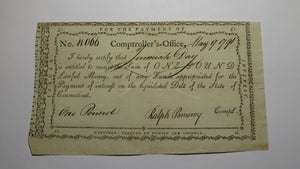 FOR THE PAYMENT OF
No. 11066 Comptroller's-Office, May 9 1791
I hereby certify that Jeremiah Day
is entitled to receive the Sum of ONE POUND
Lawful Money, out of any Funds appropriated for the
Payment of interest on the liquidated Debt of the State of
Connecticut.
One Pound Ralph Pomeroy, Compt.
HARTFORD: PRINTED BY HUDSON AND GOODWIN.